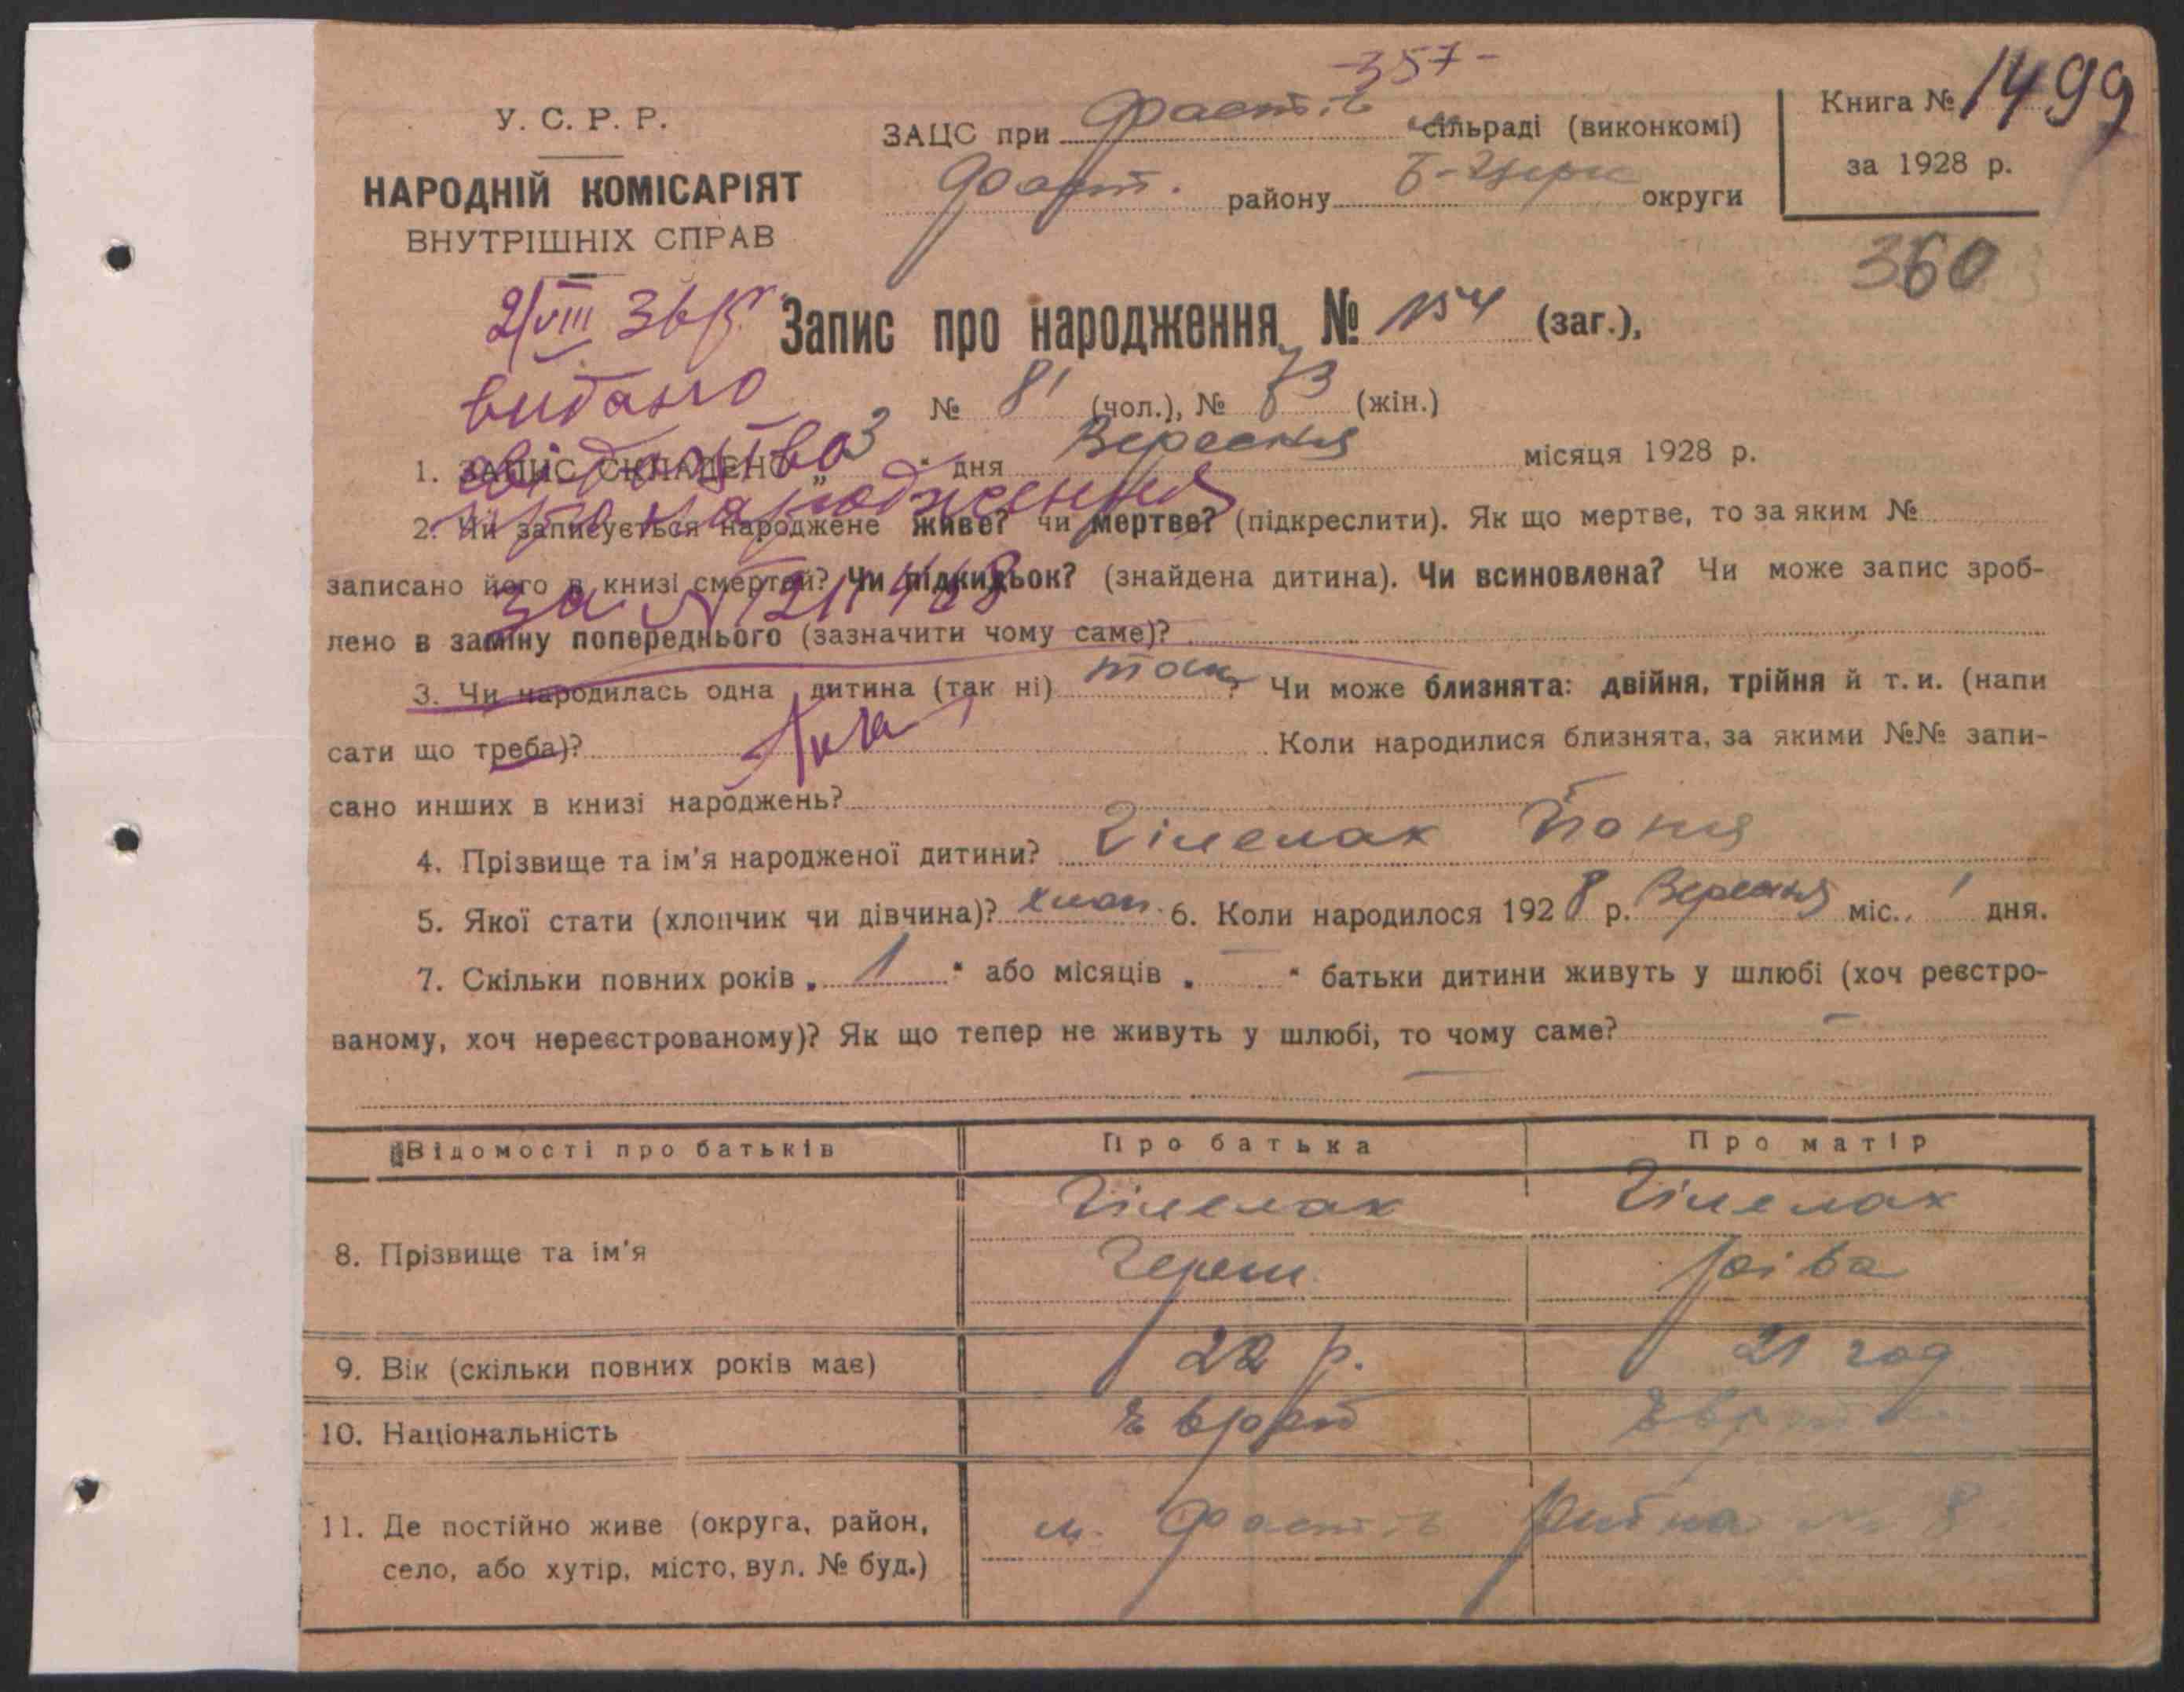 -357-
У. С. Р. Р.
НАРОДНІЙ КОМІСАРІЯТ
ВНУТРІШНІХ СПРАВ
ЗАЦС при Фастів сільраді (виконкомі)
Фаст. району Б-Церк округи
Книга № 1499
за 1928 р.
360
2/VIII 36 р.
видано
свідоцтво
про народження
за №
Запис про народження № 154 (заг.),
№ 81 (чол.), № 73 (жін.)
1. ЗАПИС СКЛАДЕНО „3“ дня Вересня місяця 1928 р.
2. Чи записується народжене живе? чи мертве? (підкреслити). Як що мертве, то за яким №
записано його в книзі смертей? Чи підкидьок? (знайдена дитина). Чи всиновлена? Чи може запис зроб-
лено в заміну попереднього (зазначити чому саме)?
3. Чи народилась одна дитина (так ні) так? Чи може близнята: двійня, трійня й т. и. (напи
сати що треба)? Коли народилися близнята, за якими №№ запи-
сано инших в книзі народжень?
4. Прізвище та ім'я народженої дитини? Гілелах Йоня
5. Якої стати (хлопчик чи дівчина)? хлоп. 6. Коли народилося 1928 р. Вересня міс., 1 дня.
7. Скільки повних років „ 1 “ або місяців „ — “ батьки дитини живуть у шлюбі (хоч реєстро-
ваному, хоч нереєстрованому)? Як що тепер не живуть у шлюбі, то чому саме? —
Відомості про батьків Про батька Про матір
8. Прізвище та ім'я Гілелах Гілелах
Герш Ріва
9. Вік (скільки повних років має) 22 р. 21 год
10. Національність Єврей
11. Де постійно живе (округа, район, м. Фастів 8
село, або хутір, місто, вул. № буд.)